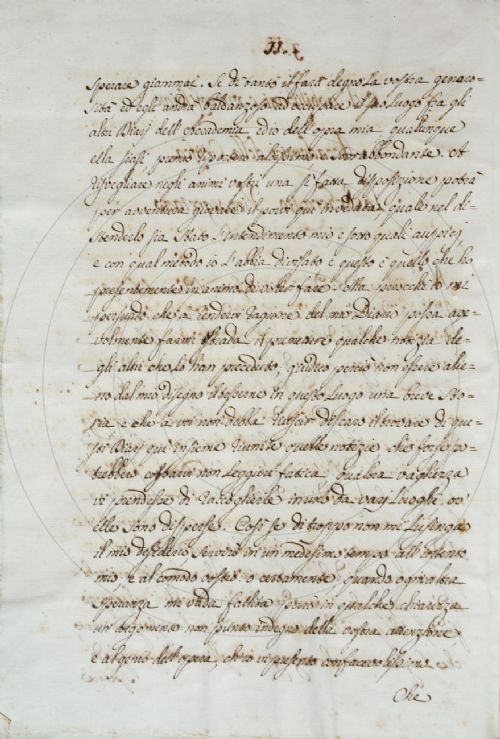 II
sperare giammai. Se di tanto il farà degno la vostra genero-
sità ed egli andrà baldanzoso ad occupare il suo luogo fra gli
altri Diarj dell'Accademia, ed io dell'opra mia qualunque
ella siasi premio riporterò altissimo e strabbondante. A
risvegliare negli animi vostri una sì fatta disposizione potrà
per avventura giovare il porvi qui innanzi quale nel di-
stenderlo sia stato l'intendimento mio e sotto quali auspicj
e con qual metodo io l'abbia disteso e questo è quello che ho
presentemente in animo di voler fare. E perciocchè io mi
persuado che a render ragione del mio Diario possa age-
volmente farmi strada il premettere qualche notizia de-
gli altri che lo han preceduto, giudico perciò non essere alie-
no dal mio disegno il tesserne in questo luogo una breve sto-
ria e che a voi non debba riuscir discaro il trovare di que-
sti Diarj qui insieme riunite quelle notizie che forse po-
trebbe costarvi non leggiera fatica qualora vaghezza
vi prendesse di raccoglierle invece da varj luoghi ov'
elle sono disperse. Così se di troppo non mi lusinga
il mio desiderio servirò in un medesimo tempo all'intento
mio e al comodo vostro o certamente quando ogni altra
speranza mi vada fallita porrò in qualche chiarezza
un argomento non punto indegno della vostra attenzione
e al genio dell'opera, ch'io vi presento confacevolissimo.
Che